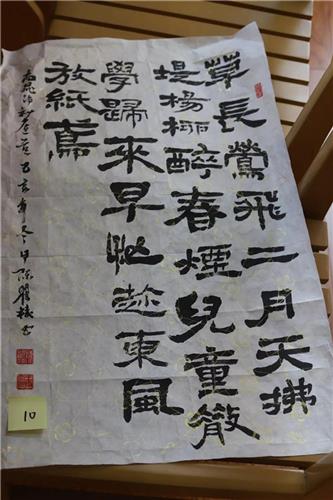 草長鶯飛二月天拂
堤楊柳醉春煙兒童散
學歸來早忙趁東風
放紙鳶
高鼎诗村居 己亥年冬月陈
10